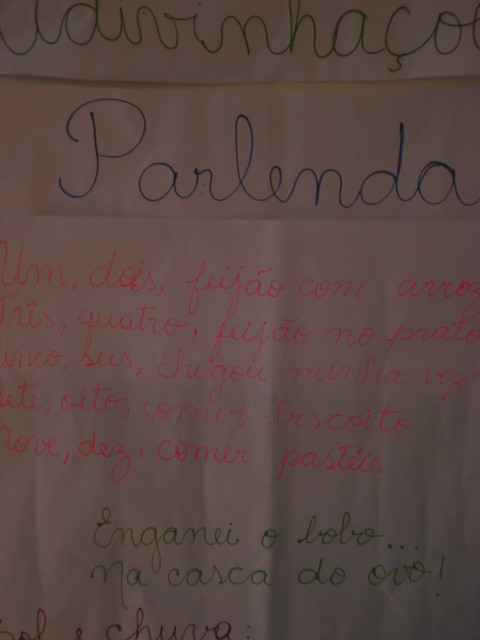 Adivinhaçõe
Parlenda
Um, dois, feijão com arroz
Três, quatro, feijão no prato
inco, seis, chegou minha vez
sete, oito, comer biscoito
Nove, dez, comer pastéis
Enganei o bobo...
Na casca do ovo!
sol e chuva: